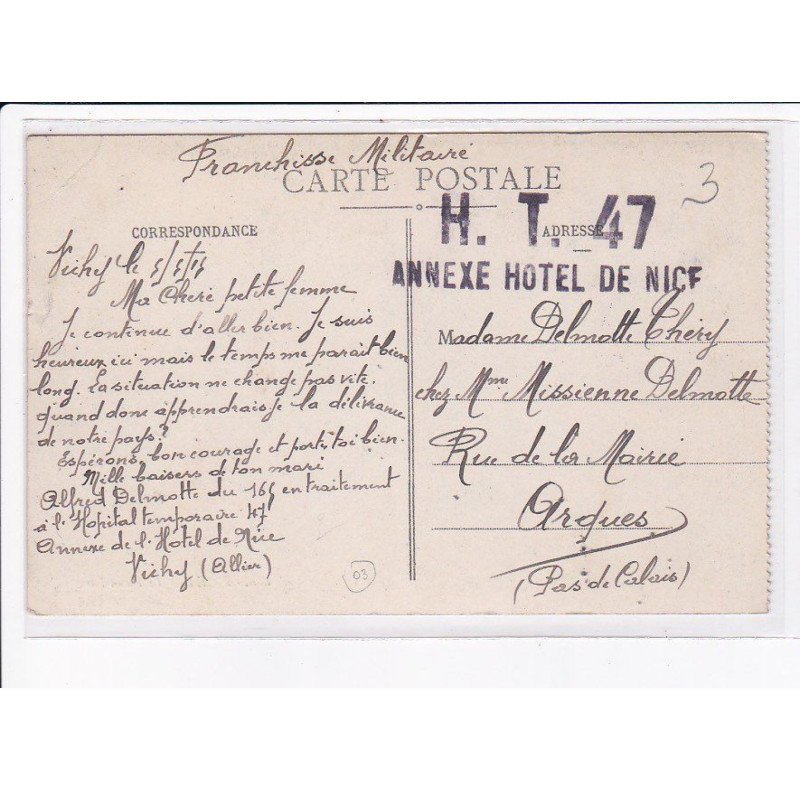 Franchisse Militaire
CARTE POSTALE
3
CORRESPONDANCE
ADRESSE
H. T. 47
ANNEXE HOTEL DE NICE
Vichy le 5/5/15
Ma Cheré petite femme
Je continue d'aller bien. Je suis
heureux ici mais le temps me parait bien
long. La situation ne change pas vite.
quand donc apprendrais je la délivrance
de notre pays?
Espérons, bon courage et porte toi bien.
Mille baisers de ton mari
Alfred Delmotte du 165 en traitement
à l'Hopital temporaire 47
Annexe de l'Hotel de Nice
Vichy (Allier)
03
Madame Delmotte Théry
chez Mme Missienne Delmotte
Rue de la Mairie
Arques
(Pas de Calais)